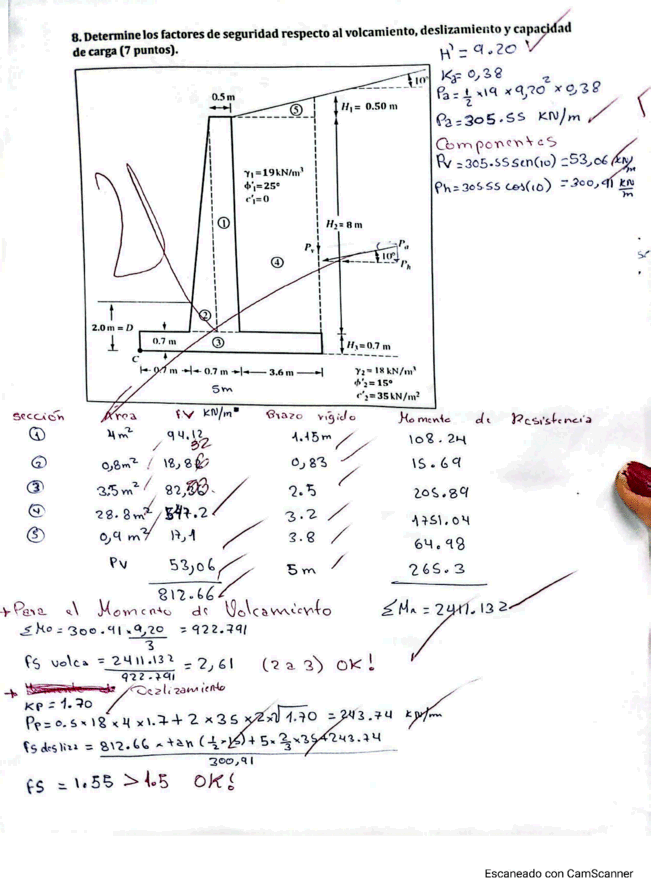 8. Determine los factores de seguridad respecto al volcamiento, deslizamiento y capacidad
de carga (7 puntos).
H' = 9.20
Ka = 0,38
Pa = 1/2 x 19 x 9,20² x 0,38
Pa = 305.55 KN/m
Componentes
Pv = 305.55 sen(10) = 53,06 KN/m
Ph = 30555 cos(10) = 300,91 KN/m
10°
0.5 m
⑤
H₁ = 0.50 m
γ₁ = 19 kN/m³
ϕ'₁ = 25°
c'₁ = 0
①
H₂ = 8 m
Pᵥ
Pₐ
10°
Pₕ
④
②
2.0 m = D
0.7 m
③
H₃ = 0.7 m
C
0.7 m
0.7 m
3.6 m
5m
γ₂ = 18 kN/m³
ϕ'₂ = 15°
c'₂ = 35 kN/m²
sección Área FV KN/m Brazo rigido Momento de Resistencia
① 4m² 94,12 1.15m 108.24
32
② 0,8m² 18,8 0,83 15.69
③ 3.5m² 82, 2.5 205.89
④ 28.8m² 547.2 3.2 1751.04
⑤ 0,9 m² 17,1 3.8 64.98
PV 53,06 5m 265.3
812.66 ΣMR = 2411.132
+ Para el Momento de Volcamiento
ΣMo = 300.91 x 9,20/3 = 922.791
fs volca = 2411.132/922.791 = 2,61 (2 a 3) OK!
+ Dezlizamiento
KP = 1.70
Pp = 0.5 x 18 x 4 x 1.7 + 2 x 35 x 2 x √1.70 = 243.74 KN/m
fs desliza = 812.66 x tan (1/2 x 15) + 5 x 2/3 x 35 + 243.74
300,91
fS = 1.55 > 1.5 OK!
Escaneado con CamScanner